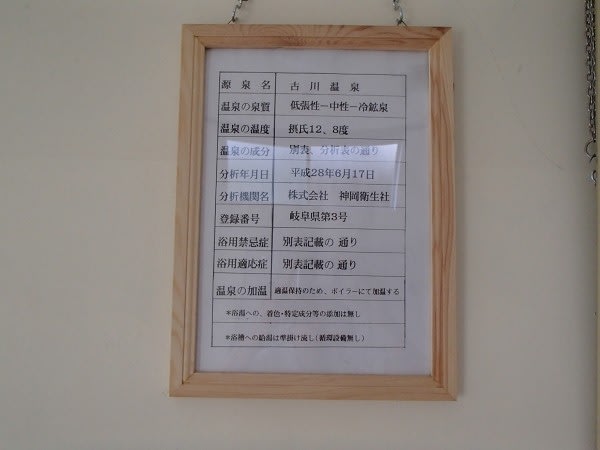 源泉名 古川温泉
温泉の泉質 低張性−中性−冷鉱泉
温泉の温度 摂氏12、8度
温泉の成分 別表、分析表の通り
分析年月日 平成28年6月17日
分析機関名 株式会社 神岡衛生社
登録番号 岐阜県第3号
浴用禁忌症 別表記載の 通り
浴用適応症 別表記載の 通り
温泉の加温 適温保持のため、ボイラーにて加温する
*浴湯への、着色・特定成分等の添加は無し
*浴槽への給湯は準掛け流し(循環設備無し)